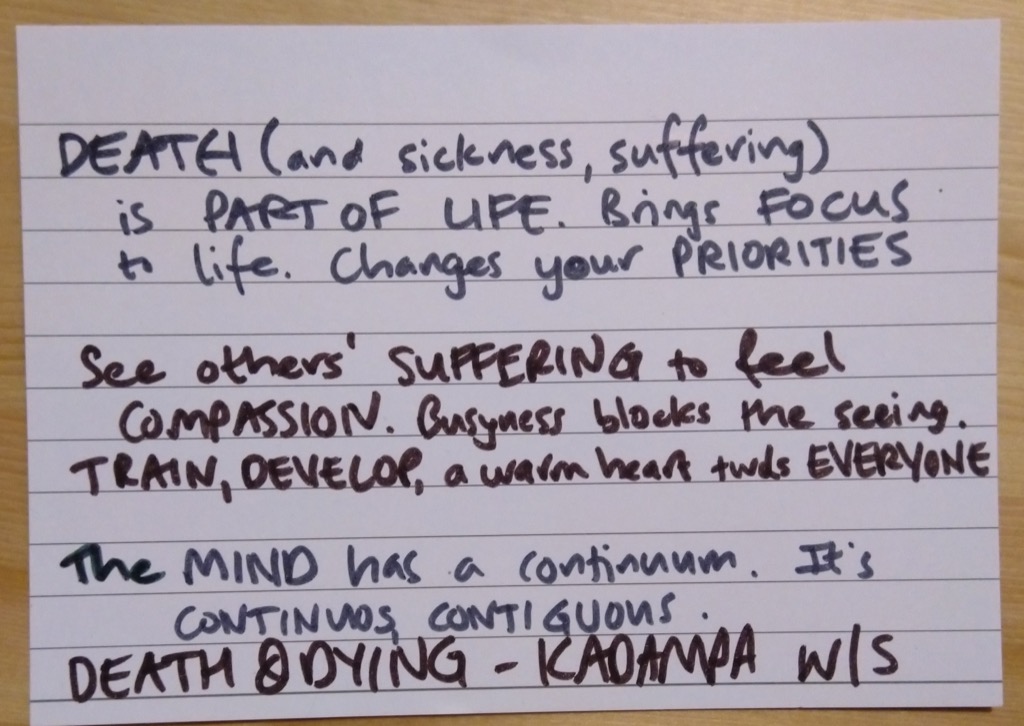 DEATH (and sickness, suffering)
is PART OF LIFE. Brings FOCUS
to life. Changes your PRIORITIES
See others' SUFFERING to feel
COMPASSION. Busyness blocks the seeing.
TRAIN, DEVELOP, a warm heart twds EVERYONE
The MIND has a continuum. It's
CONTINUOS, CONTIGUOUS.
DEATH & DYING - KADAMPA W/S